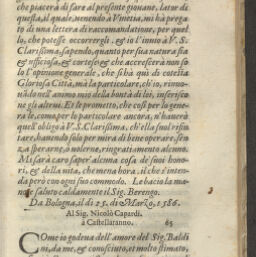 che piacerà di fare al presente giouane, lator di
questa, il quale, uenendo à Vinetia, mi hà prega
to di una lettera di raccomandatione, per quel
lo, che potesse occorrergli. & io l'inuio à V. S.
Clarissima, sapendo, quanto per sua natura sia
& officiosa, & cortese, & che accrescerà non so
lo l'opinion generale, che si hà qui di cotesta
Gloriosa Città, mà la particolare, ch'io, rimo-
nel animo mio della bontà di lei, inserisco
ne gli altri. Et le prometto, che così per lo gene
rale, come per lo particolare ancora, n'hauerò
quell'obligo à V. S. Clarissima, ch'ella suol rifiu
tare, hauendo solo per mira di bene operare, sen
za sperarne, ò uolerne, ringratiamento alcuno.
Mi sarà caro saper' alcuna cosa de' suoi honо
ri, & della uita, che mena hora, il che s'inten
da però con ogni suo commodo. Le bacio la ma-
no & saluto caldamente il Sig. Berengo.
Da Bologna, il dì 25. di Marzo, 1586.
Al Sig. Nicolò Capardi.
à Castellaranno. 65
COme io godeua dell'amore del Sig. Baldi
ni, da me, & conosciuto, et molto stimato,